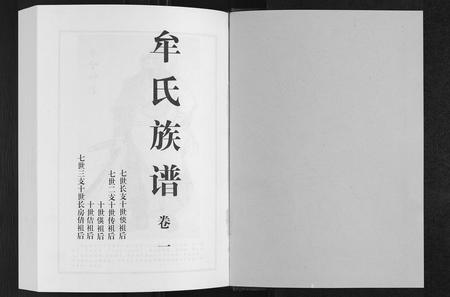 牟氏族谱
卷一
七世长支十世偀祖后
七世二支十世传祖后
十世偀祖后
十世佶祖后
七世三支十世长房倩祖后